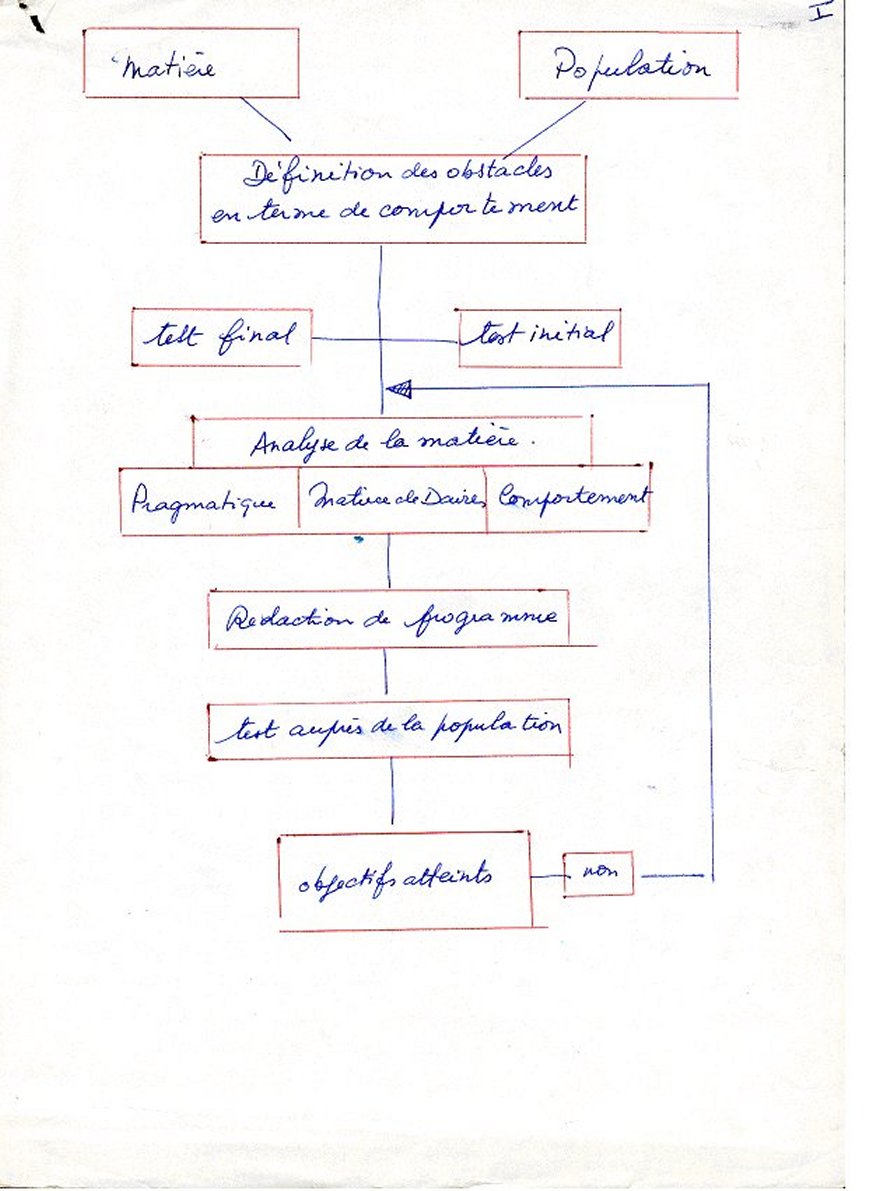 Matière
Population
Définition des obstacles
en terme de comportement
test final
test initial
Analyse de la matière.
Pragmatique
Matrice de Davies
Comportement
Rédaction de programme
test auprès de la population
objectifs atteints
non